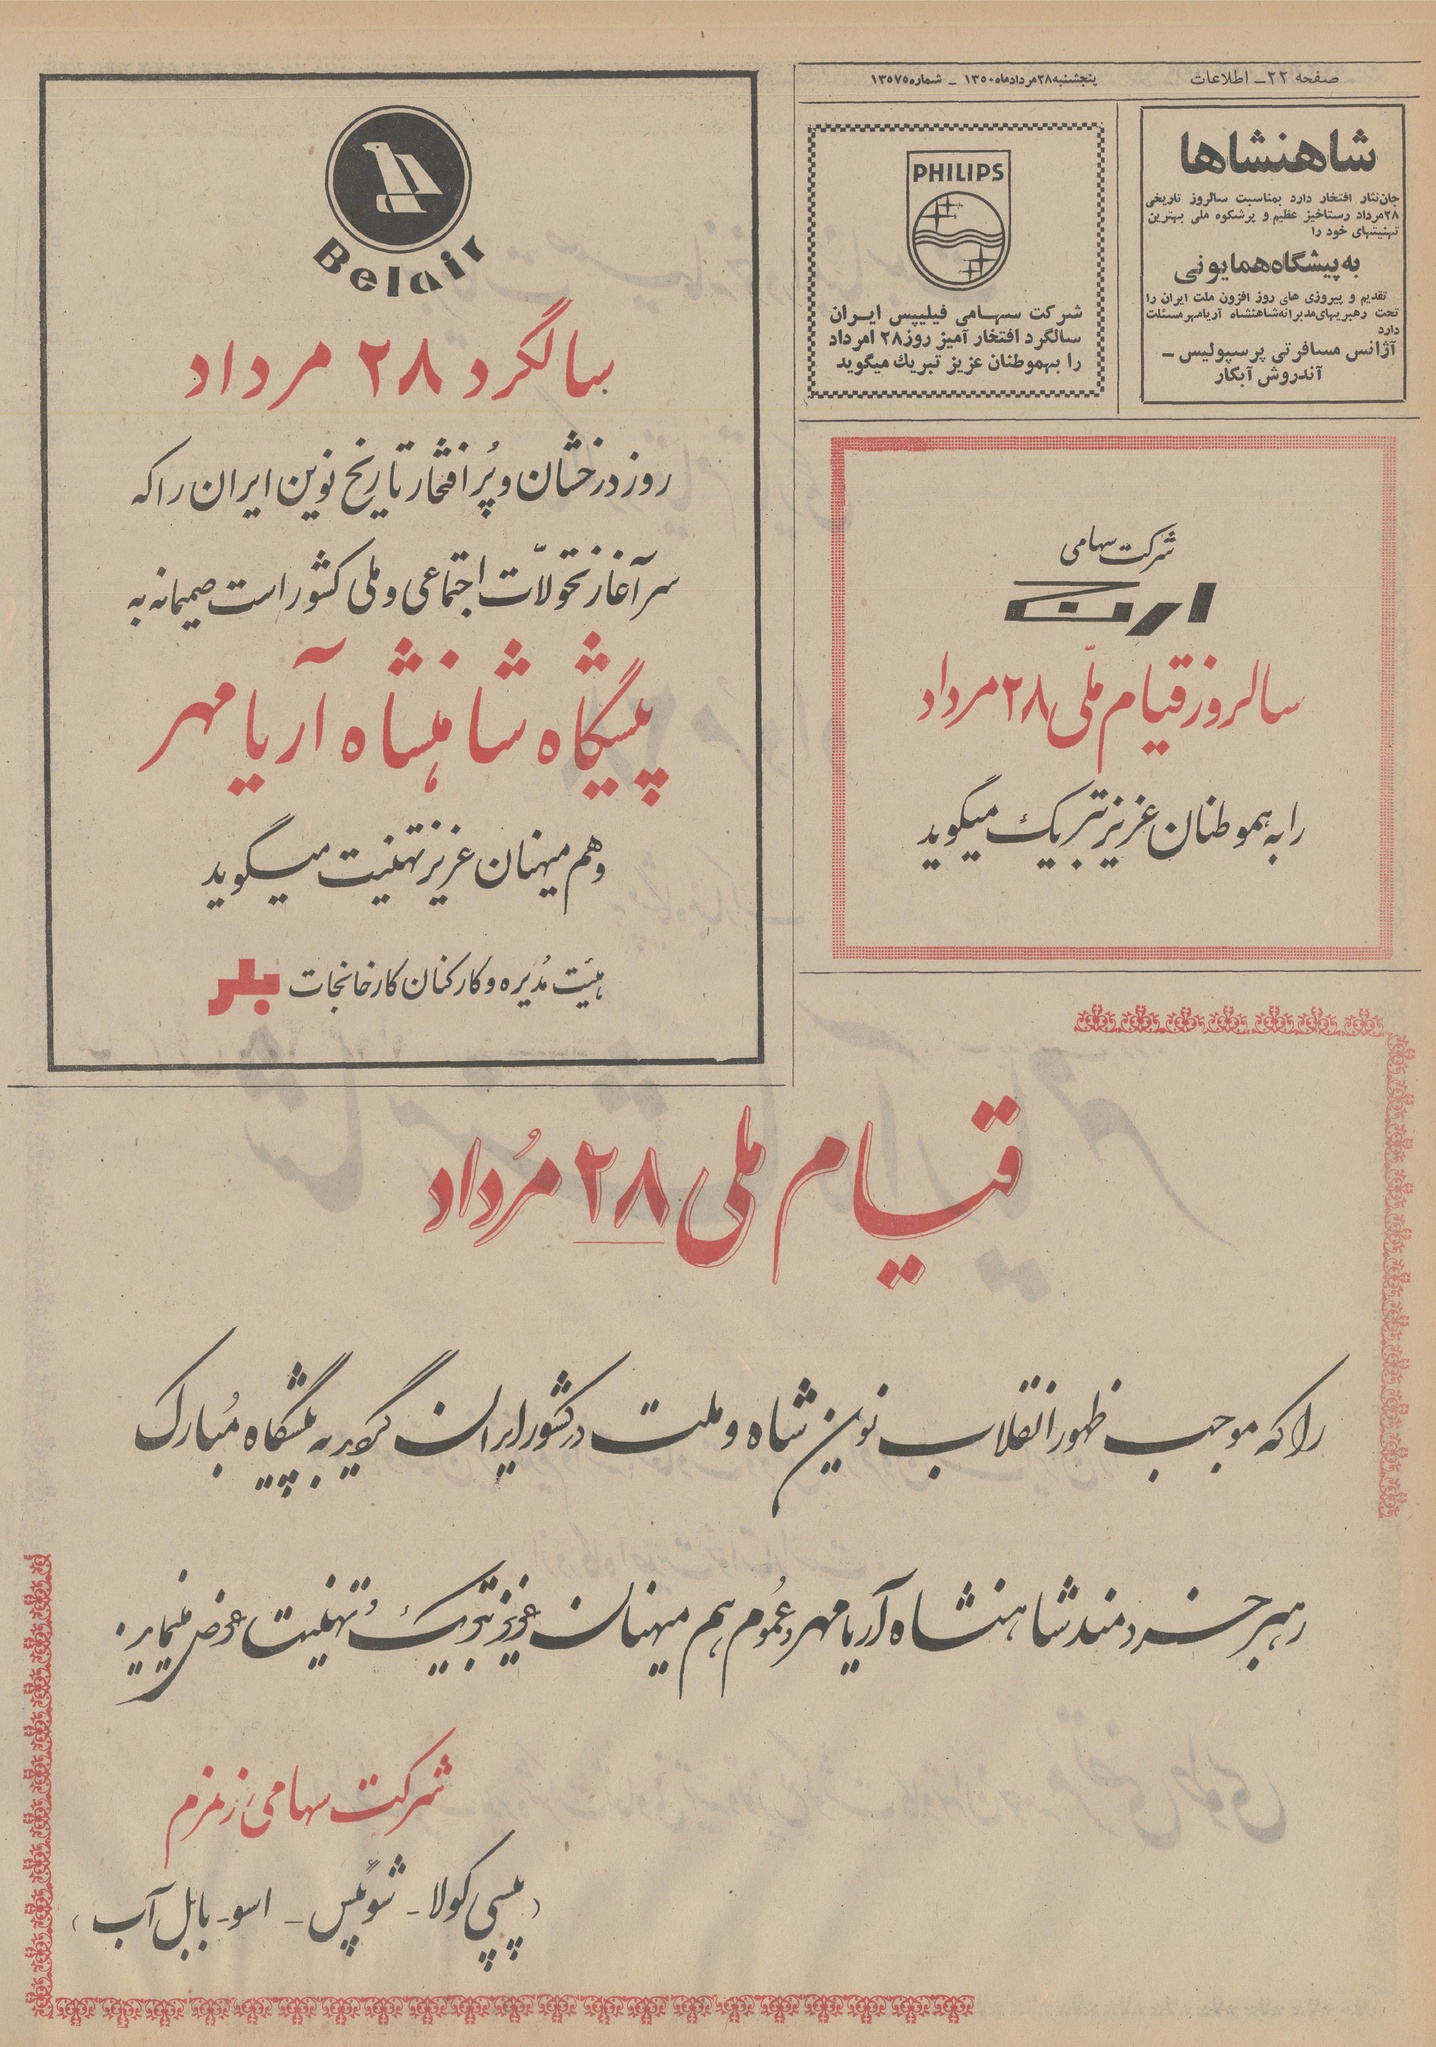 صفحه ۲۲ـ اطلاعات
پنجشنبه ۲۸ مرداد ماه ۱۳۵۰ ـ شماره ۱۳۵۷۵
شاهنشاها
جان‌نثار افتخار دارد بمناسبت سالروز تاریخی
۲۸مرداد رستاخیز عظیم و پرشکوه ملی بهترین
تهنیتهای خود را
به پیشگاه همایونی
تقدیم و پیروزی های روز افزون ملت ایران را
تحت رهبریهای مدبرانه شاهنشاه آریامهر مسئلت
دارد
آژانس مسافرتی پرسپولیس ـ
آندروش آبکار
PHILIPS
شرکت سهامی فیلیپس ایران
سالگرد افتخار آمیز روز ۲۸ امرداد
را بهموطنان عزیز تبریك میگوید
Belair
سالگرد ۲۸ مرداد
روز درخشان و پُر افتخار تاریخ نوین ایران را که
سرآغاز تحولّات اجتماعی و ملی کشور است صمیمانه به
پیشگاه شاهنشاه آریامهر
و هم میهنان عزیز تهنیت میگوید
هیئت مُدیره و کارکنان کارخانجات بلر
شرکت سهامی
ارج
سالروز قیام ملّی ۲۸ مرداد
را به هموطنان عزیز تبریک میگوید
قیام ملی ۲۸ مُرداد
را که موجب ظهور انقلاب نوین شاه و ملت در کشور ایران گردید به پیشگاه مُبارک
رهبر خردمند شاهنشاه آریامهر و عُموم هم میهنان عزیز تبریک و تهنیت عرض مینماید.
شرکت سهامی زمزم
(پپسی کولا - شوپس - اسو - بابل آپ)